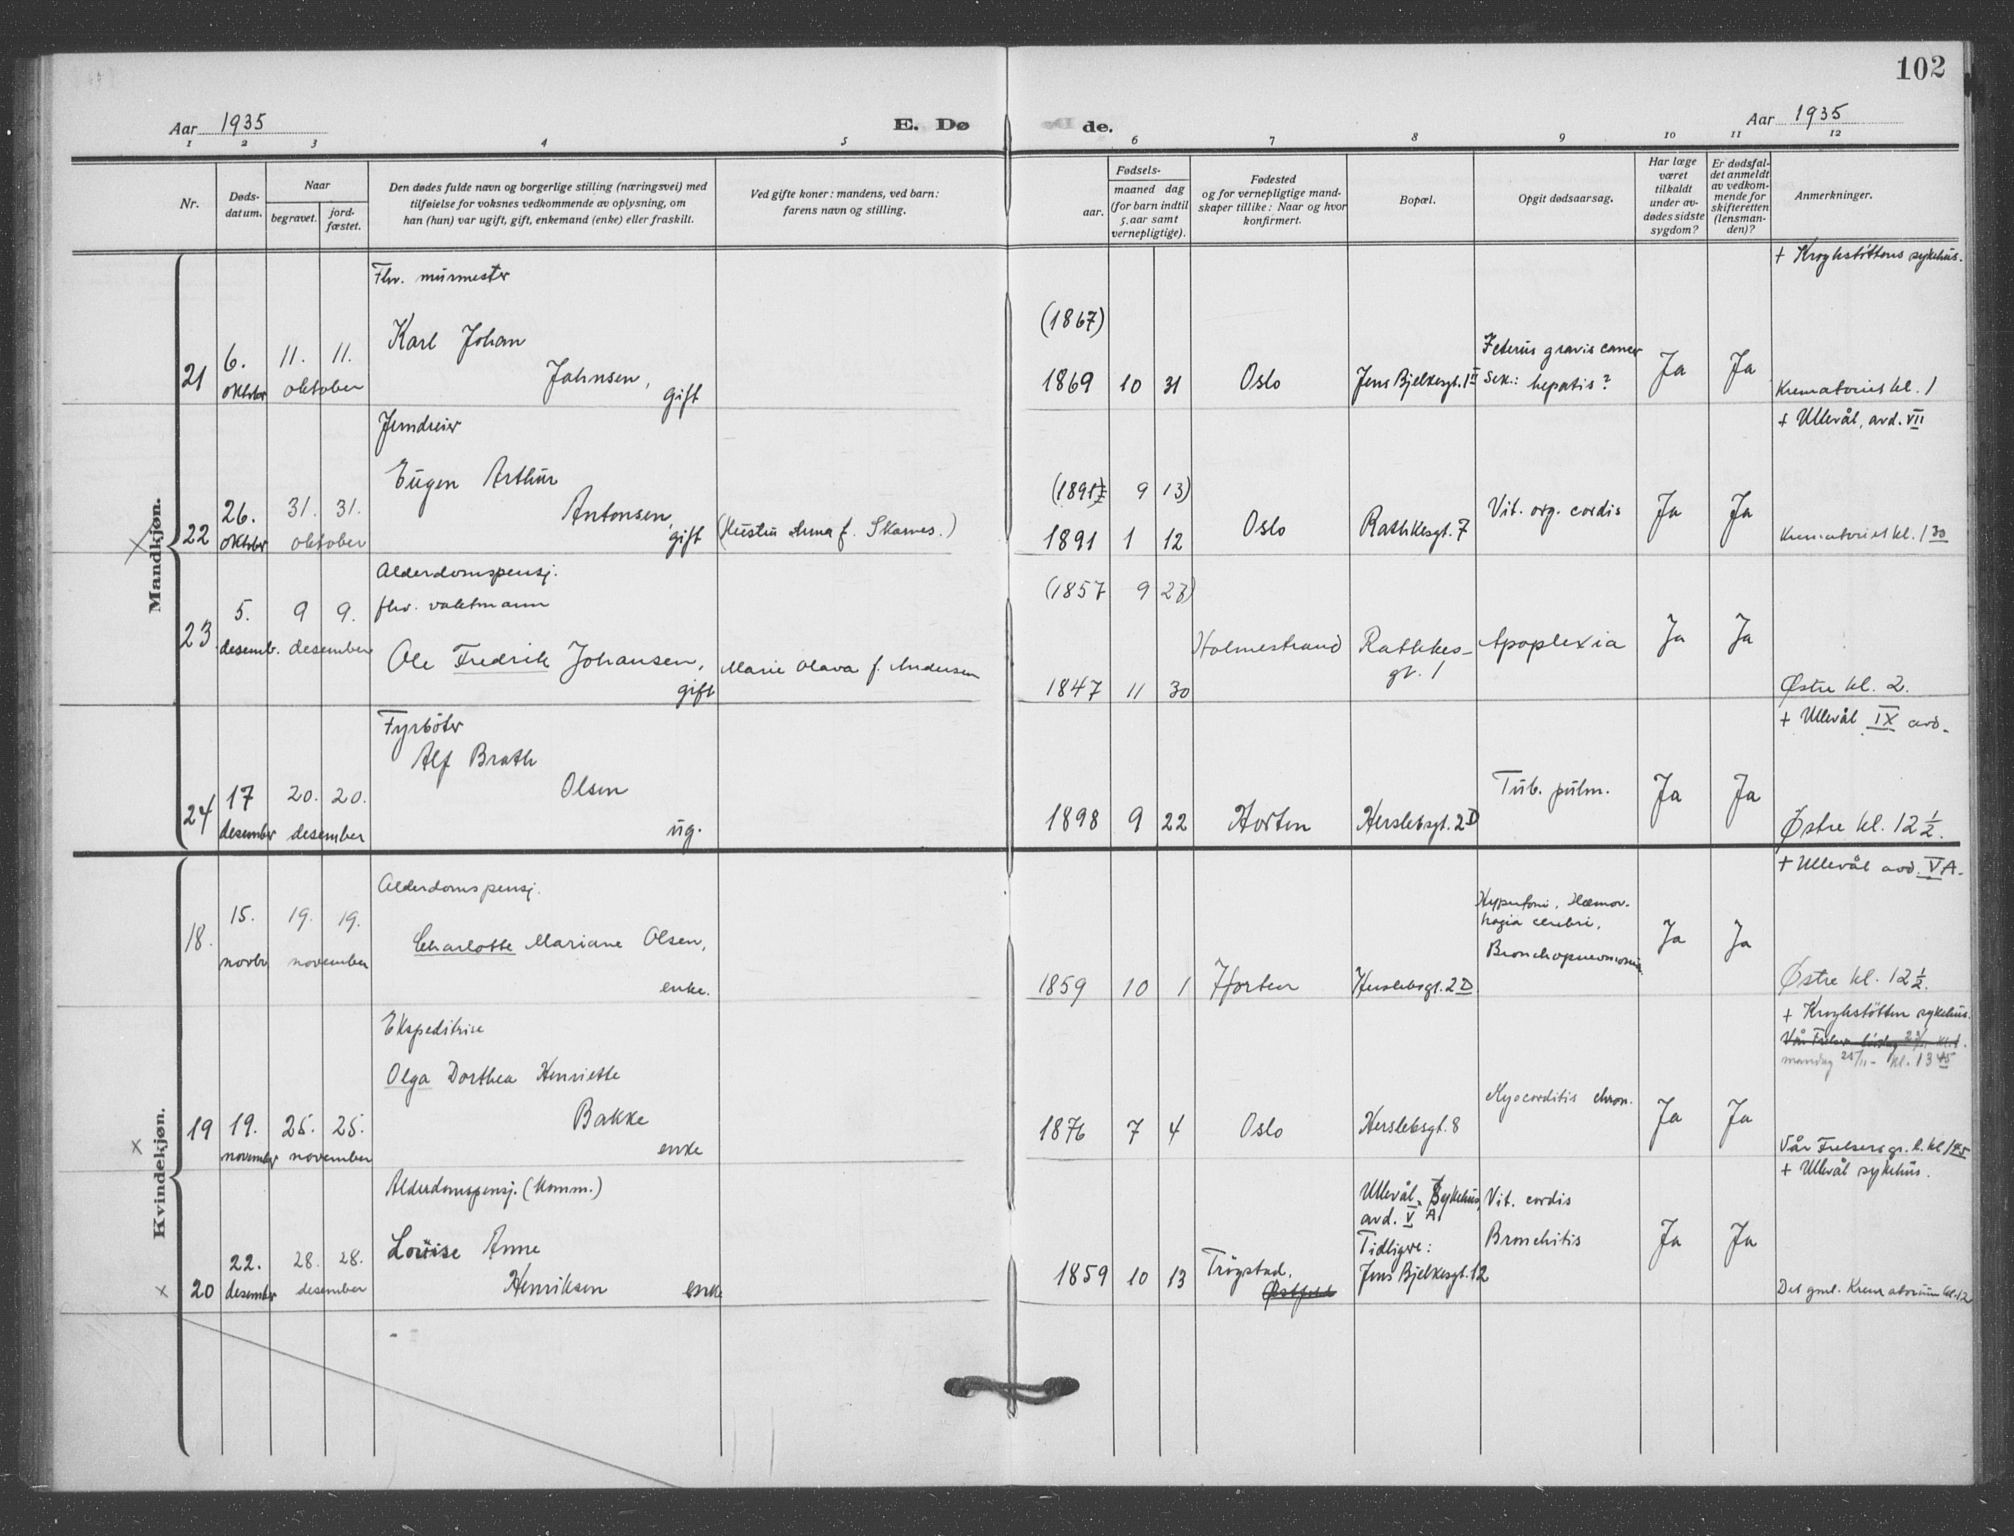 102
Aar 1935
E. Dø de.
Aar 1935
1 2 3 4 5 6 7 8 9 10 11 12
Nr.
Døds-
datum.
Naar
begravet.
jord-
fæstet.
Den dødes fulde navn og borgerlige stilling (næringsvei) med
tilføielse for voksnes vedkommende av oplysning, om
han (hun) var ugift, gift, enkemand (enke) eller fraskilt.
Ved gifte koner: mandens, ved barn:
farens navn og stilling.
Fødsels-
aar.
maaned dag
(for barn indtil
5. aar samt
vernepligtige).
Fødested
og for vernepligtige mand-
skaper tillike: Naar og hvor
konfirmert.
Bopæl.
Opgit dødsaarsag.
Har læge
været
tilkaldt
under av-
dødes sidste
sygdom?
Er dødsfal-
det anmeldt
av vedkom-
mende for
skifteretten
(lensman-
den)?
Anmerkninger.
Mandkjøn.
Fhv. murmester
+ Kroghstøttens sykehus.
(1867)
21 6. oktober 11. 11. oktober
Karl Johan
Jahnsen,
gift
1869 10 31
Oslo
Jens Bjelkesgt. 1 II
Icterus gravis cancer
Sek.: hepatis?
Ja Ja
Krematoriet kl. 1
Jerndreier
+ Ullevål, avd. VII
Eugen Arthur
(1891 9 13)
22 26. oktober 31. 31. oktober
Antonsen,
gift
f. Skarnes.)
1891 1 12
Oslo
Rathkesgt. 7
Vit. org. cordis
Ja Ja
Krematoriet kl. 1 30
Alderdomspensj.
fhv. vaktmann
(1857 9 23)
23. 5. desemb. 9 9. desember
Ole Fredrik Johansen,
gift
Marie Olava f. Andersen
1847 11 30
Holmestrand
Rathkes-
gt. 1
Apoplexia
Ja Ja
Østre kl. 2.
Fyrbøter
+ Ullevål IX avd.
Alf Brath
Olsen
ug.
24 17 desember 20. 20. desember
1898 9 22
Horten
Herslebsgt. 2D
Tub. pulm.
Ja Ja
Østre kl. 12 1/2.
Kvindekjøn.
+ Ullevål avd. V A.
Alderdomspensj.
18. 15. novbr 19. 19. november
Charlotte Mariane Olsen,
enke.
1859 10 1
Horten
Herslebsgt. 2D
Hypertoni, Hæmor-
hagia cerebri,
Bronchopneumonia
Ja Ja
Østre kl. 12 1/2.
Ekspeditrise
+ Kroghstøtten sykehus.
mandag 25/11 - kl. 13 45
Olga Dorthea Henriette
Bakke
enke
19 19. november 25. 25. november
1876 7 4
Oslo
Herslebsgt. 8
Myocorditis chron.
Ja Ja
Vår Frelsersgr. l. kl 1 45
Alderdomspensj. (komm.)
+ Ullevål sykehus.
Louise Anne
Henriksen enke
20 22. desember 28. 28. desember
1859 10 13
Trøgstad.
Østfold
Ullevål Sykehus,
avd. V A
Tidligere:
Jens Bjelkesgt. 12
Vit. cordis
Bronchitis
Ja Ja
Det gml. Krematorium kl. 12